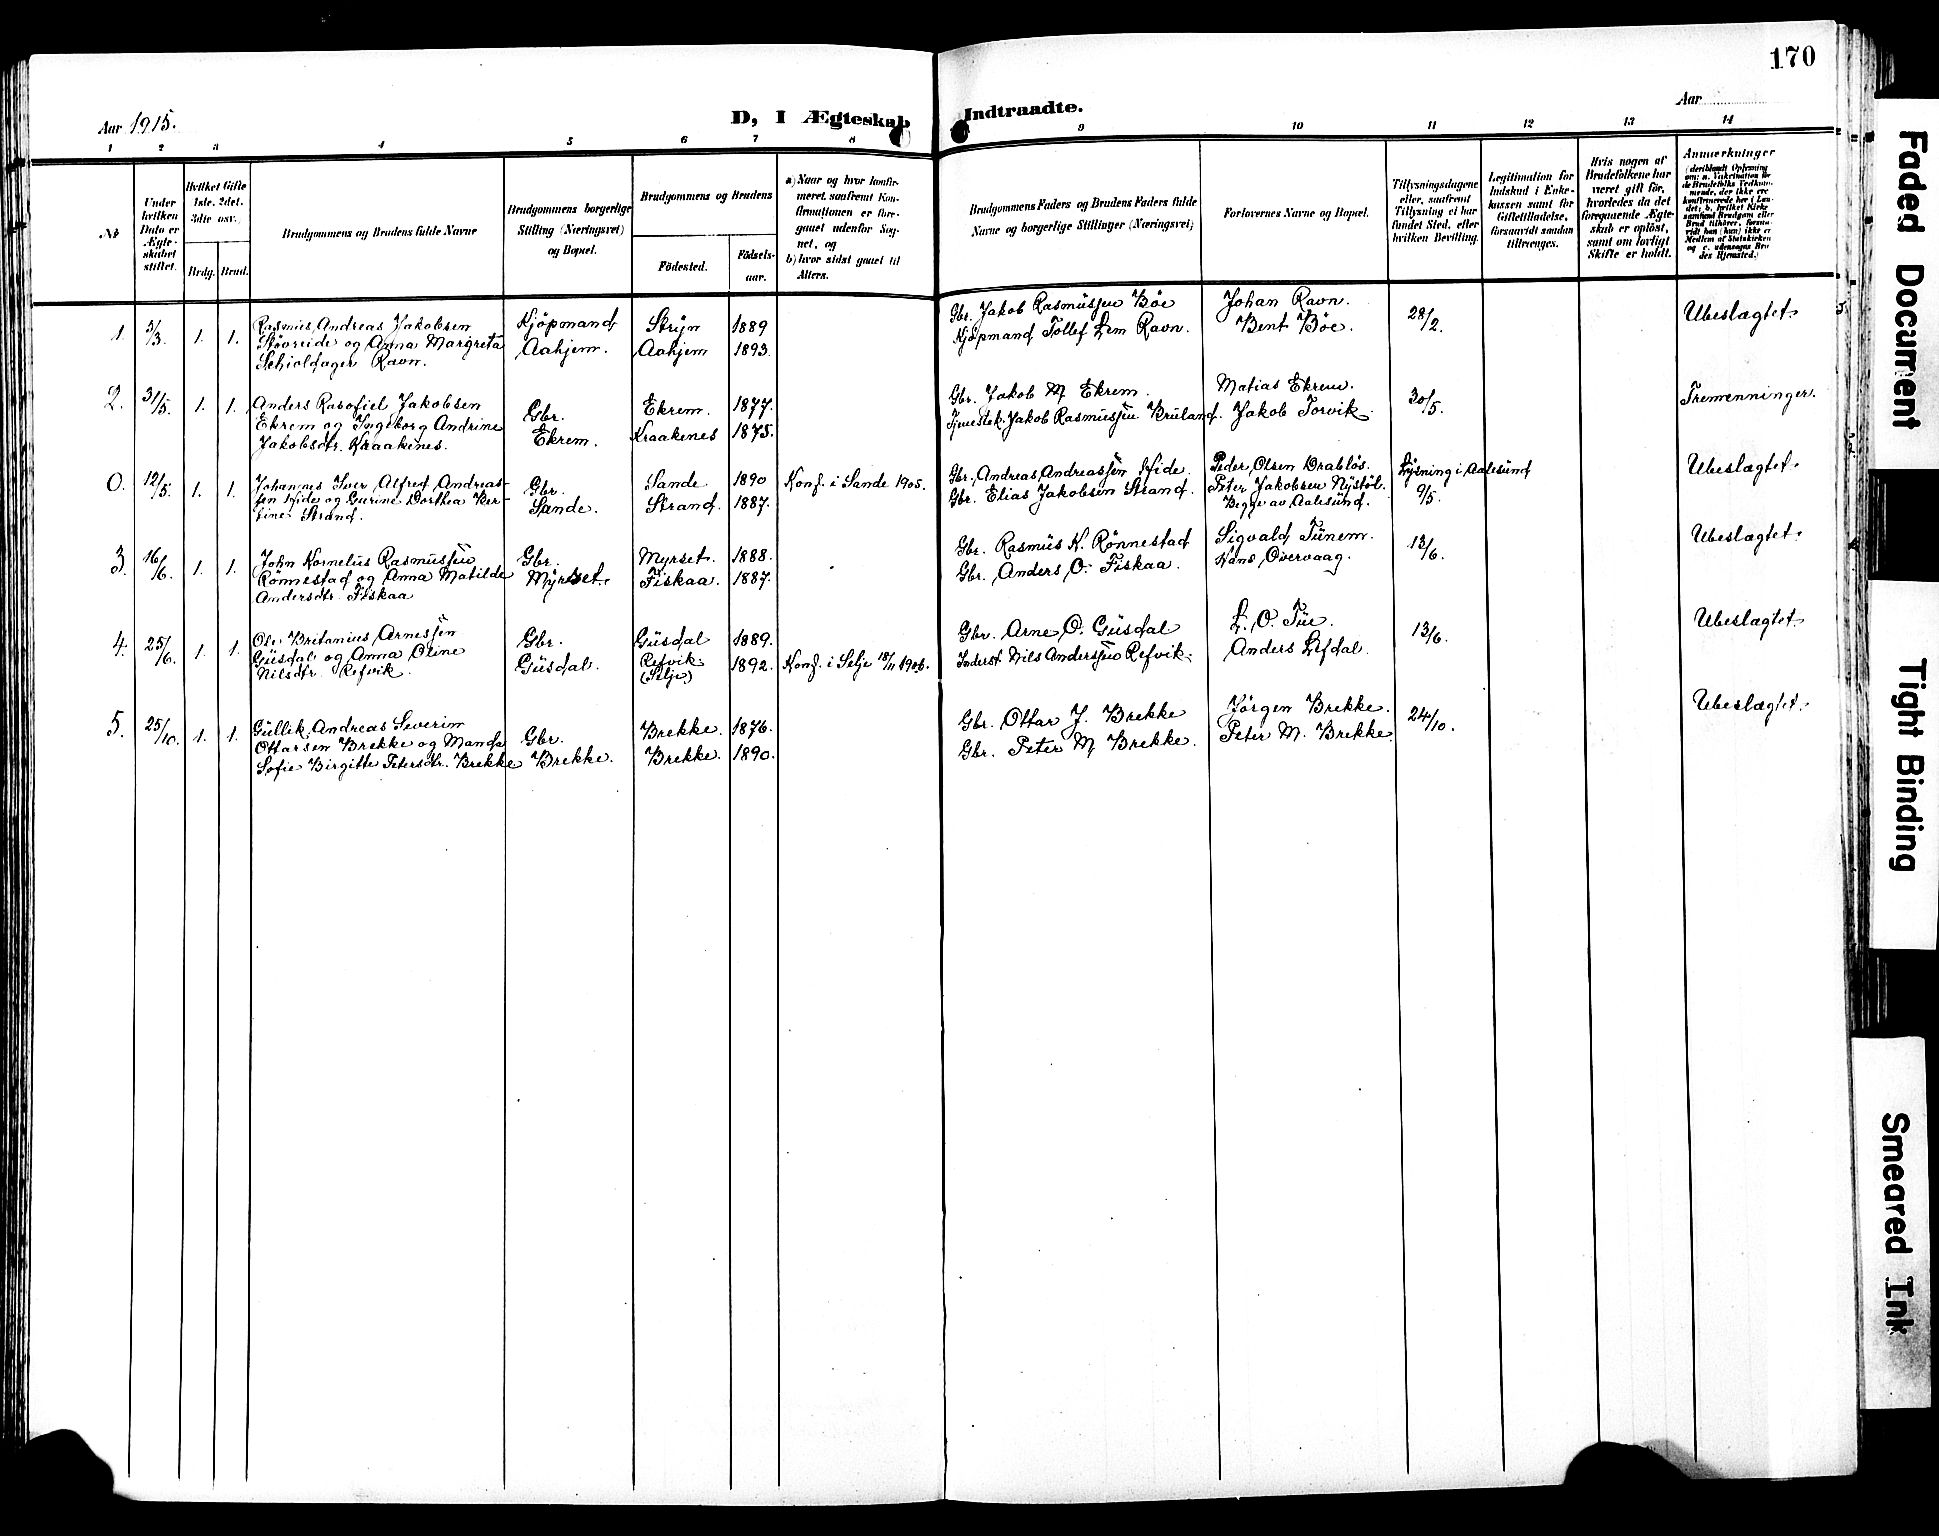 170
Aar 1915.
D, I Ægteskab Indtraadte.
Aar
1 2 3 4 5 6 7 8 9 10 11 12 13 14
No
Under
hvilken
Dato er
Ægte-
skabet
stiftet.
Hvilket Gifte
1ste. 2det.
3die osv.
Brdg. Brud.
Brudgommens og Brudens fulde Navne
Brudgommens borgerlige
Stilling (Næringsvei)
og Bopæl.
Brudgommens og Brudens
Födested.
Födsels-
aar.
a) Naar og hvor konfir-
meret, saafremt Kon-
firmationen er fore-
gaaet udenfor Sog-
net, og
b) hvor sidst gaaet til
Alters.
Brudgommens Faders og Brudens Faders fulde
Navne og borgerlige Stillinger (Næringsvei)
Forlovernes Navne og Bopæl.
Tillysningsdagene
eller, saafremt
Tillysning ei har
fundet Sted, efter
hvilken Bevilling.
Legitimation for
Indskud i Enke-
kassen samt for
Giftetilladelse,
forsaavidt saadan
tiltrænges.
Hvis nogen af
Brudefolkene har
været gift för,
hvorledes da det
foregaaende Ægte-
skab er oplöst,
samt om lovligt
Skifte er holdt.
Anmærkninger
1. 5/3 1. 1. Rasmus Andreas Jakobsen Kjöpmand Stryn 1889 Gbr. Jakob Rasmussen Böe Johan Ravn. 28/2. Ubeslægtet.
Störreide og Anna Margreta Aahjem. Aahjem 1893. Kjöpmand Tollef Lem Ravn. Bent Böe.
Schioldager Ravn.
2. 31/5. 1. 1. Anders Rasofiel Jakobsen Gbr. Ekrem. 1877. Gbr. Jakob M. Ekrem. Matias Ekrem. 30/5. Tremenninger.
Ekrem og Ingeborg Andrine Ekrem. Kraakenes 1875. Tjenestek. Jakob Rasmussen Bruland. Jakob Torvik.
Jakobsdtr. Kraakenes.
0. 12/5. 1. 1. Johannes Iver Alfred Andreas- Gbr. Sande 1890 Konf. i Sande 1905. Gbr. Andreas Andreassen Hide. Peder Olsen Drablös. Lysning i Aalesund Ubeslægtet.
sen Hide og Gurine Dorthea Ber- Sande. Strand. 1887. Gbr. Elias Jakobsen Strand. Peter Jakobsen Nystöl. 9/5.
tine Strand. Begge av Aalesund.
3. 16/6. 1. 1. John Kornelius Rasmussen Gbr. Myrset. 1888. Gbr. Rasmus K. Rönnestad Sigvald Tunem. 13/6. Ubeslægtet.
Rönnestad og Anna Matilde Myrset. Fiskaa. 1887. Gbr. Anders O. Fiskaa. Hans Overvaag.
Andersdtr. Fiskaa
4. 25/6. 1. 1. Ole Britanius Arnessen Gbr. Gusdal 1889. Gbr. Arne O. Gusdal L. O. Tue. 13/6. Ubeslægtet
Gusdal og Anna Oline Gusdal. Refvik 1892. Konf. i Selje 18/11 1906. Inderst Nils Anderssen Refvik. Anders Lefdal.
Nilsdtr. Refvik. (Selje)
5. 25/10. 1. 1. Gullik Andreas Severin Gbr. Brekke. 1876. Gbr. Ottar J. Brekke Jörgen Brekke. 24/10. Ubeslægtet.
Ottarsen Brekke og Manda Brekke. Brekke. 1890. Gbr. Peter M. Brekke. Peter M. Brekke.
Sofie Birgitte Petersdtr. Brekke
Faded Document
Tight Binding
Smeared Ink